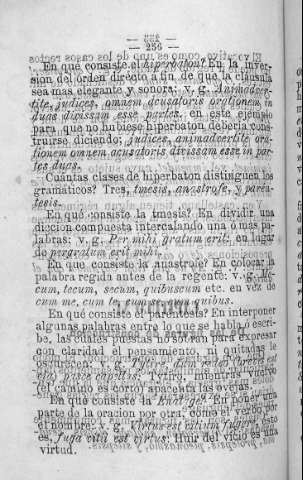 — 256 —
En qué consiste el hiperbaton? En la inver-
sion del órden directo a fin de que la cláusula
sea mas elegante y sonora: v, g, Animadver-
tite, judices, omnem acusatoris orationem in
duas divissam esse partes. en este ejemplo
para que no hubiese hiperbaton debería cons-
truirse diciendo; judices, animadvertite ora-
tionem omnem acusatoris divissam esse in par-
tes duas.
Cuántas clases de hiperbaton distinguen los
gramáticos? Tres, tmesis, anastrofe, y parén-
tesis.
En qué consiste la tmesis? En dividir una
diccion compuesta intercalando una ó mas pa-
labras: v, g, Per mihi gratum erit; en lugar
de pergratum erit mihi.
En que consiste la anastrofe? En colocar la
palabra regida antes de la regente: v. g. Me-
cum, tecum, secum, quibuscum etc. en vez de
cum me, cum te, cum se, cum quibus.
En qué consiste el paréntesis? En interponer
algunas palabras entre lo que se habla ó escri-
be, las cuales puestas no sobran para expresar
con claridad el pensamiento, ni quitadas le
obscurecen: v, g, Tytire, dum redeo, brevis est
via, pasce capellas: Tytiro, mientras vuelvo
(el camino es corto) apacenta las ovejas.
En que consiste la Enálage? En poner una
parte de la oracion por otra, como el verbo por
el nombre: v. g. Virtus est vitium fugere, esto
es, fuga vitii est virtus: Huir del vicio es una
virtud.